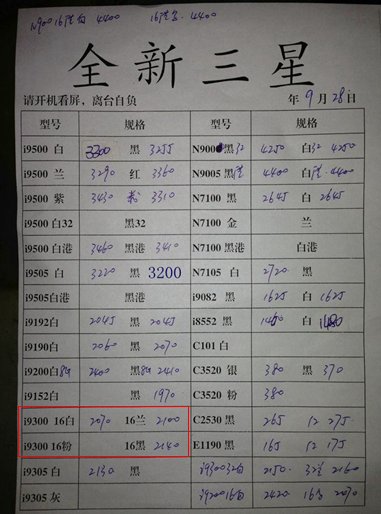 N900 16港白 4400 16港黑 4400
全新三星
请开机看屏，离台自负 年 9 月 28 日
型号 规格 型号 规格
i9500 白 3200 黑 3255 N900 黑32 4250 白32 4250
i9500 兰 3290 红 3360 N9005 黑港 4400 白港 4400
i9500 紫 3430 3310 N7100 黑 2645 白 2645
i9500 白32 黑32 N7100 金 兰
i9500 白港 3460 黑港 3410 N7100 黑港 白港
i9505 白 3220 黑 3200 N7105 白 2720 黑
i9505白港 黑港 i9082 黑 1625 白 1625
i9192白 2045 黑 2045 i8552 黑 1450 白 1480
i9190白 2060 黑 2070 C101 白
i9200白8G 2400 黑8G 2410 C3520 银 380 黑 370
i9152白 黑 1970 C3520 粉 380
i9300 16白 2070 16兰 2100 C2530 黑 265 红 275
i9300 16粉 16黑 2140 E1190 黑 165 红 175
i9305 白 2130 黑 i9300 32白 2150 32兰 2160
i9305 灰 i9200 16白 2420 2070